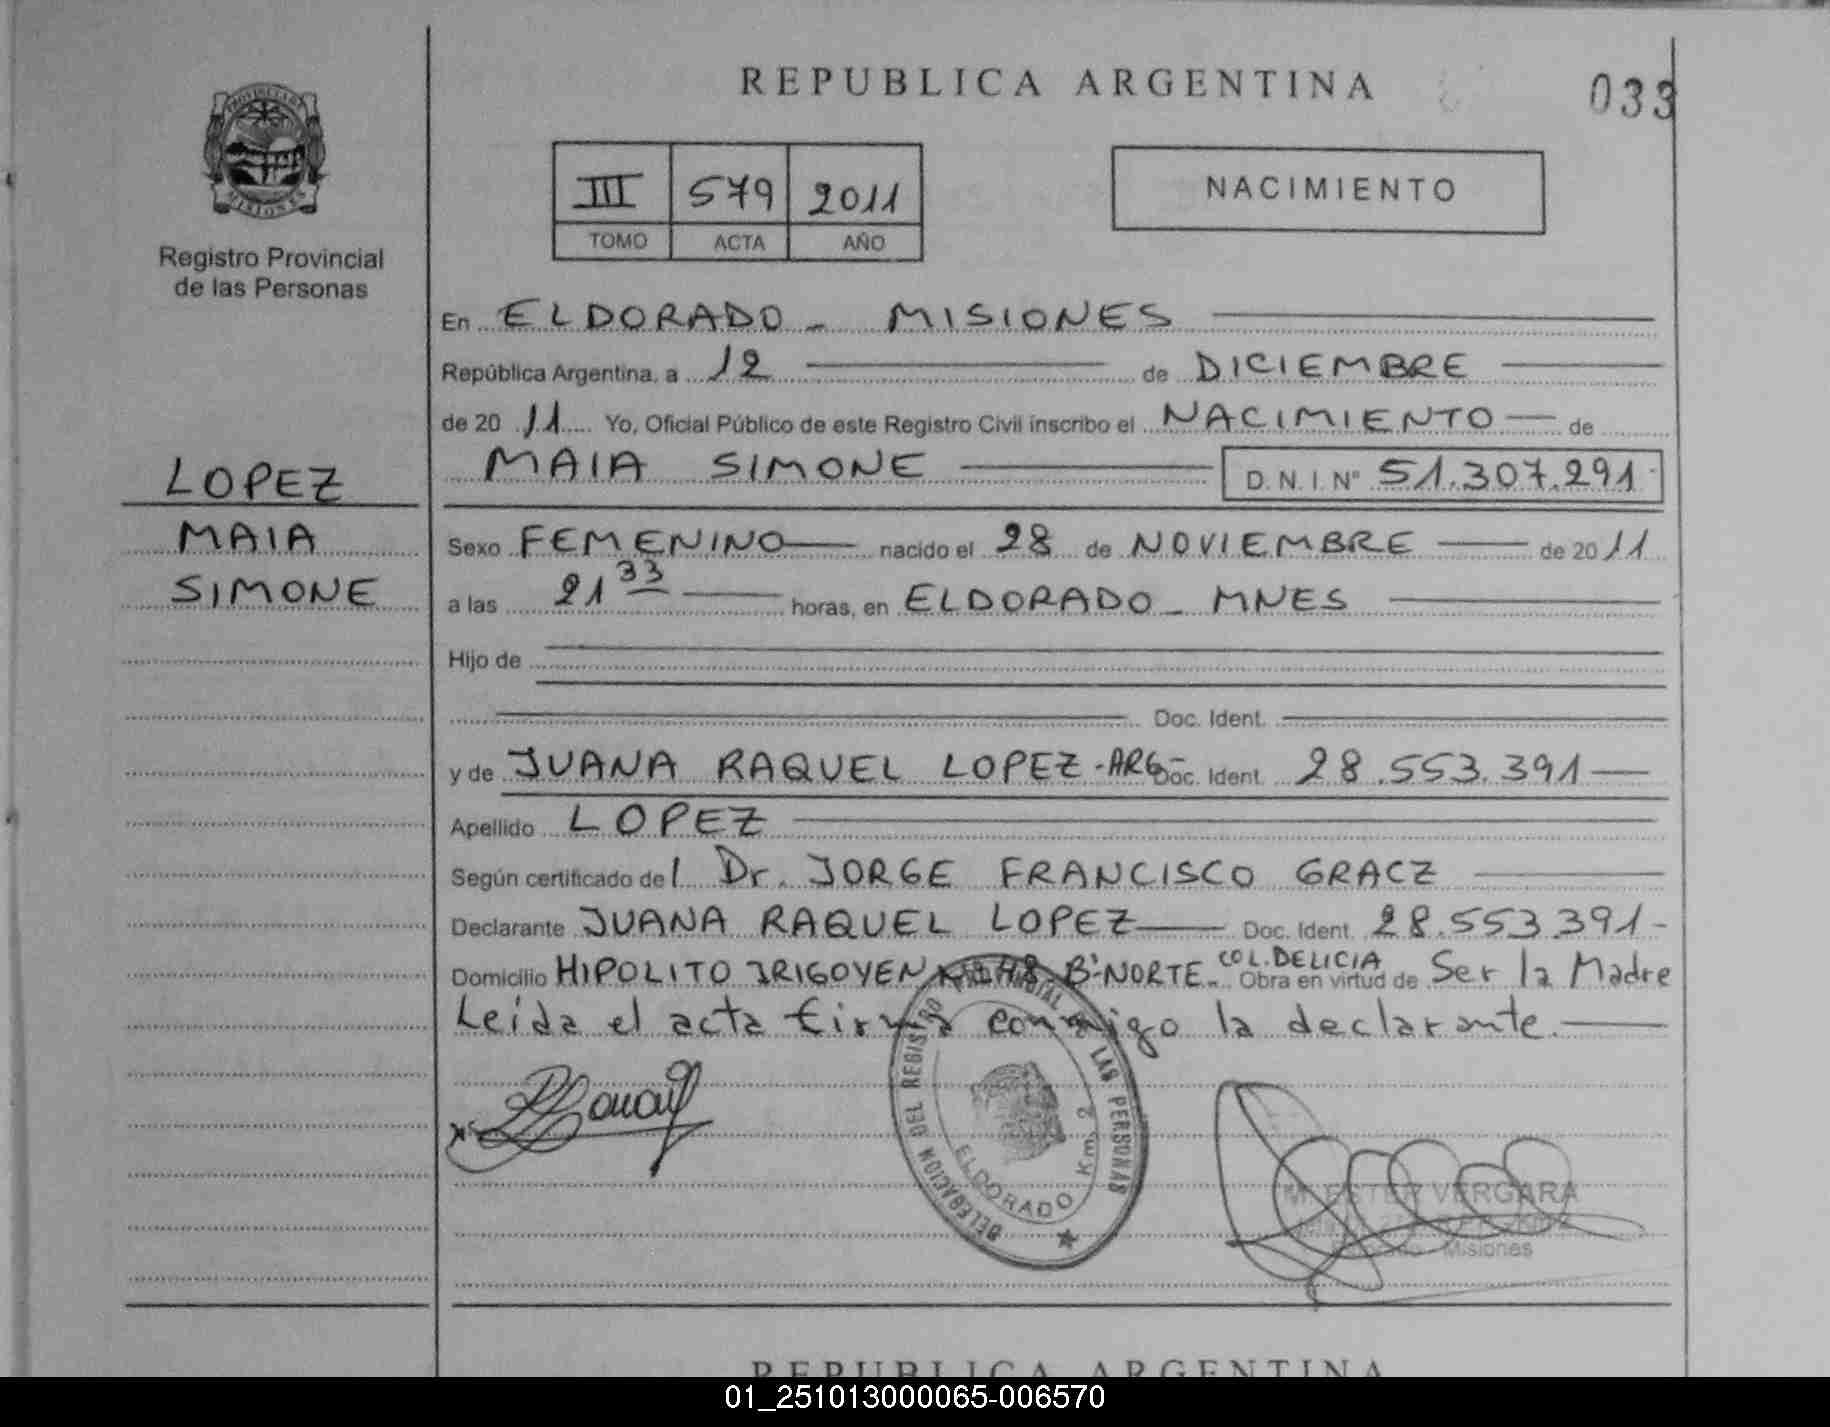 REPUBLICA ARGENTINA
033
PROVINCIA DE
MISIONES
Registro Provincial
de las Personas
III 579 2011
TOMO ACTA AÑO
NACIMIENTO
En ELDORADO - MISIONES
República Argentina, a 12 de DICIEMBRE
de 20 11 Yo, Oficial Público de este Registro Civil inscribo el NACIMIENTO de
MAIA SIMONE D. N. I. Nº 51.307.291
LOPEZ
MAIA
SIMONE
Sexo FEMENINO nacido el 28 de NOVIEMBRE de 20 11
a las 21 33 horas, en ELDORADO - MNES
Hijo de
Doc. Ident.
y de JUANA RAQUEL LOPEZ - ARG Doc. Ident. 28.553.391
Apellido LOPEZ
Según certificado del Dr. JORGE FRANCISCO GRACZ
Declarante JUANA RAQUEL LOPEZ Doc. Ident. 28.553.391-
Domicilio HIPOLITO IRIGOYEN Bº NORTE - COL. DELICIA Obra en virtud de Ser la Madre
Leída el acta firma conmigo la declarante.
DELEGACION DEL REGISTRO PROVINCIAL DE LAS PERSONAS
ELDORADO Km. 2
M. ESTER VERGARA
Eldorado - Misiones
REPUBLICA ARGENTINA
01_251013000065-006570